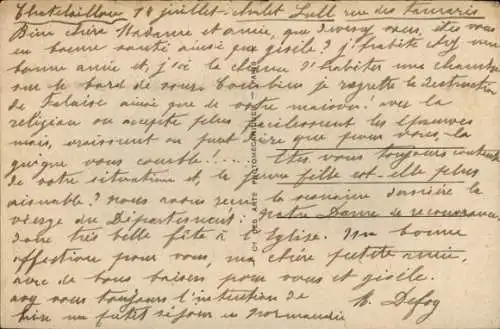 Chatelaillon 18 juillet. Chalet Lull rue des Tamaris
Bien chère Madame et amie, que devenez vous, êtes vous
en bonne santé ainsi que gisèle ? j'habite chez une
bonne amie et j'ai la chance d'habiter une chambre
sur le bord de mer. Combien je regrette la destruction
de falaise ainsi que de votre maison ! avec la
religion on accepte plus facilement les épreuves
mais, vraiment on peut dire que pour vous, la
guigne vous comble ! ... Etes vous toujours contente
de votre situation et la jeune fille est-elle plus
aimable ? nous avons reçu la semaine dernière la
vierge du Département : Notre Dame de
Donc très belle fête à l'Eglise. Un bonne
affectueux pour vous, ma chère petite amie,
avec de bons baisers pour vous et gisèle.
avez vous toujours l'intention de
faire un petit séjour en Normandie
CI DES ARTS PHOTOMECANIQUES